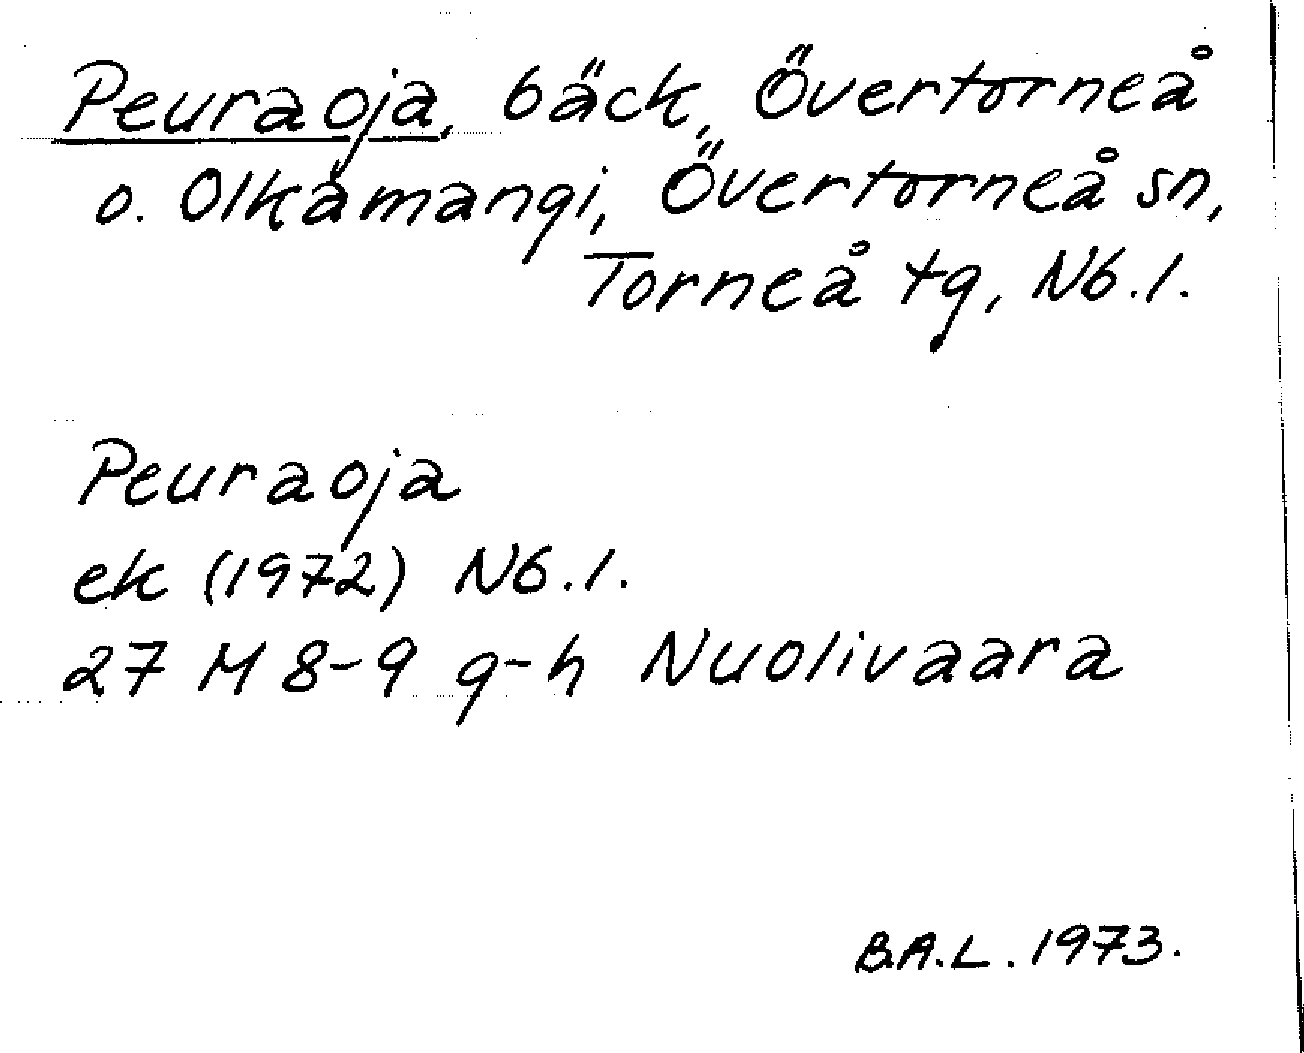 Peuraoja, bäck, Övertorneå
o. Olkamangi, Övertorneå sn,
Torneå tg, Nb.l.
Peuraoja
ek (1972) Nb.l.
27 M 8-9 g-h Nuolivaara
B.A.L. 1973.